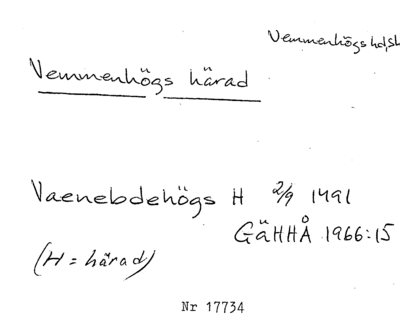 Vemmenhögs hd, Sk
Vemmenhögs härad
Vaenebdehögs H 2/9 1491
GäHHÅ 1966:15
(H = härad)
Nr 17734